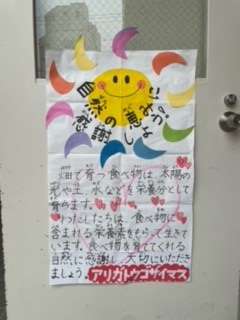 自然の
感謝
畑で育つ食べ物は、太陽の
光や土、水などを栄養分として
育ちます。
わたしたちは、食べ物に
含まれる栄養素をもらって生きて
います。食べ物を育ててくれる
自然に感謝し、大切にいただき
ましょう。アリガトウゴザイマス